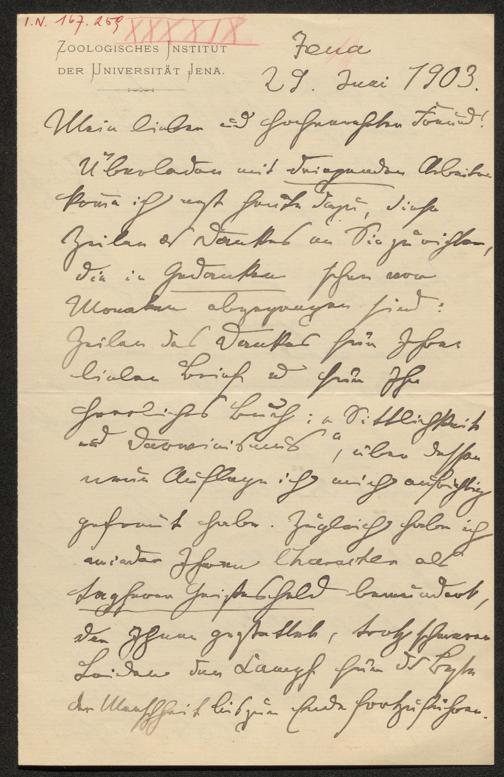 I.N. 167.259
ZOOLOGISCHES INSTITUT
DER UNIVERSITÄT JENA.
Jena
29. Juni 1903.
Mein lieber und hochverehrter Freund!
Überladen mit dringenden Arbeiten
komme ich erst heute dazu, diese
Zeilen des Dankes an Sie zu richten,
die in Gedanken schon vor
Monaten abgegangen sind:
Zeilen des Dankes für Ihren
lieben Brief und für Ihr
herrliches Buch: „Sittlichkeit
und Darwinismus“, über dessen
neue Auflage ich mich aufrichtig
gefreut habe. Zugleich habe ich
wieder Ihren Charakter als
tapferen Geistesheld bewundert,
der Ihnen gestattet, trotz schweren
Leidens den Kampf für das Beste
der Menschheit bis zum Ende fortzuführen.